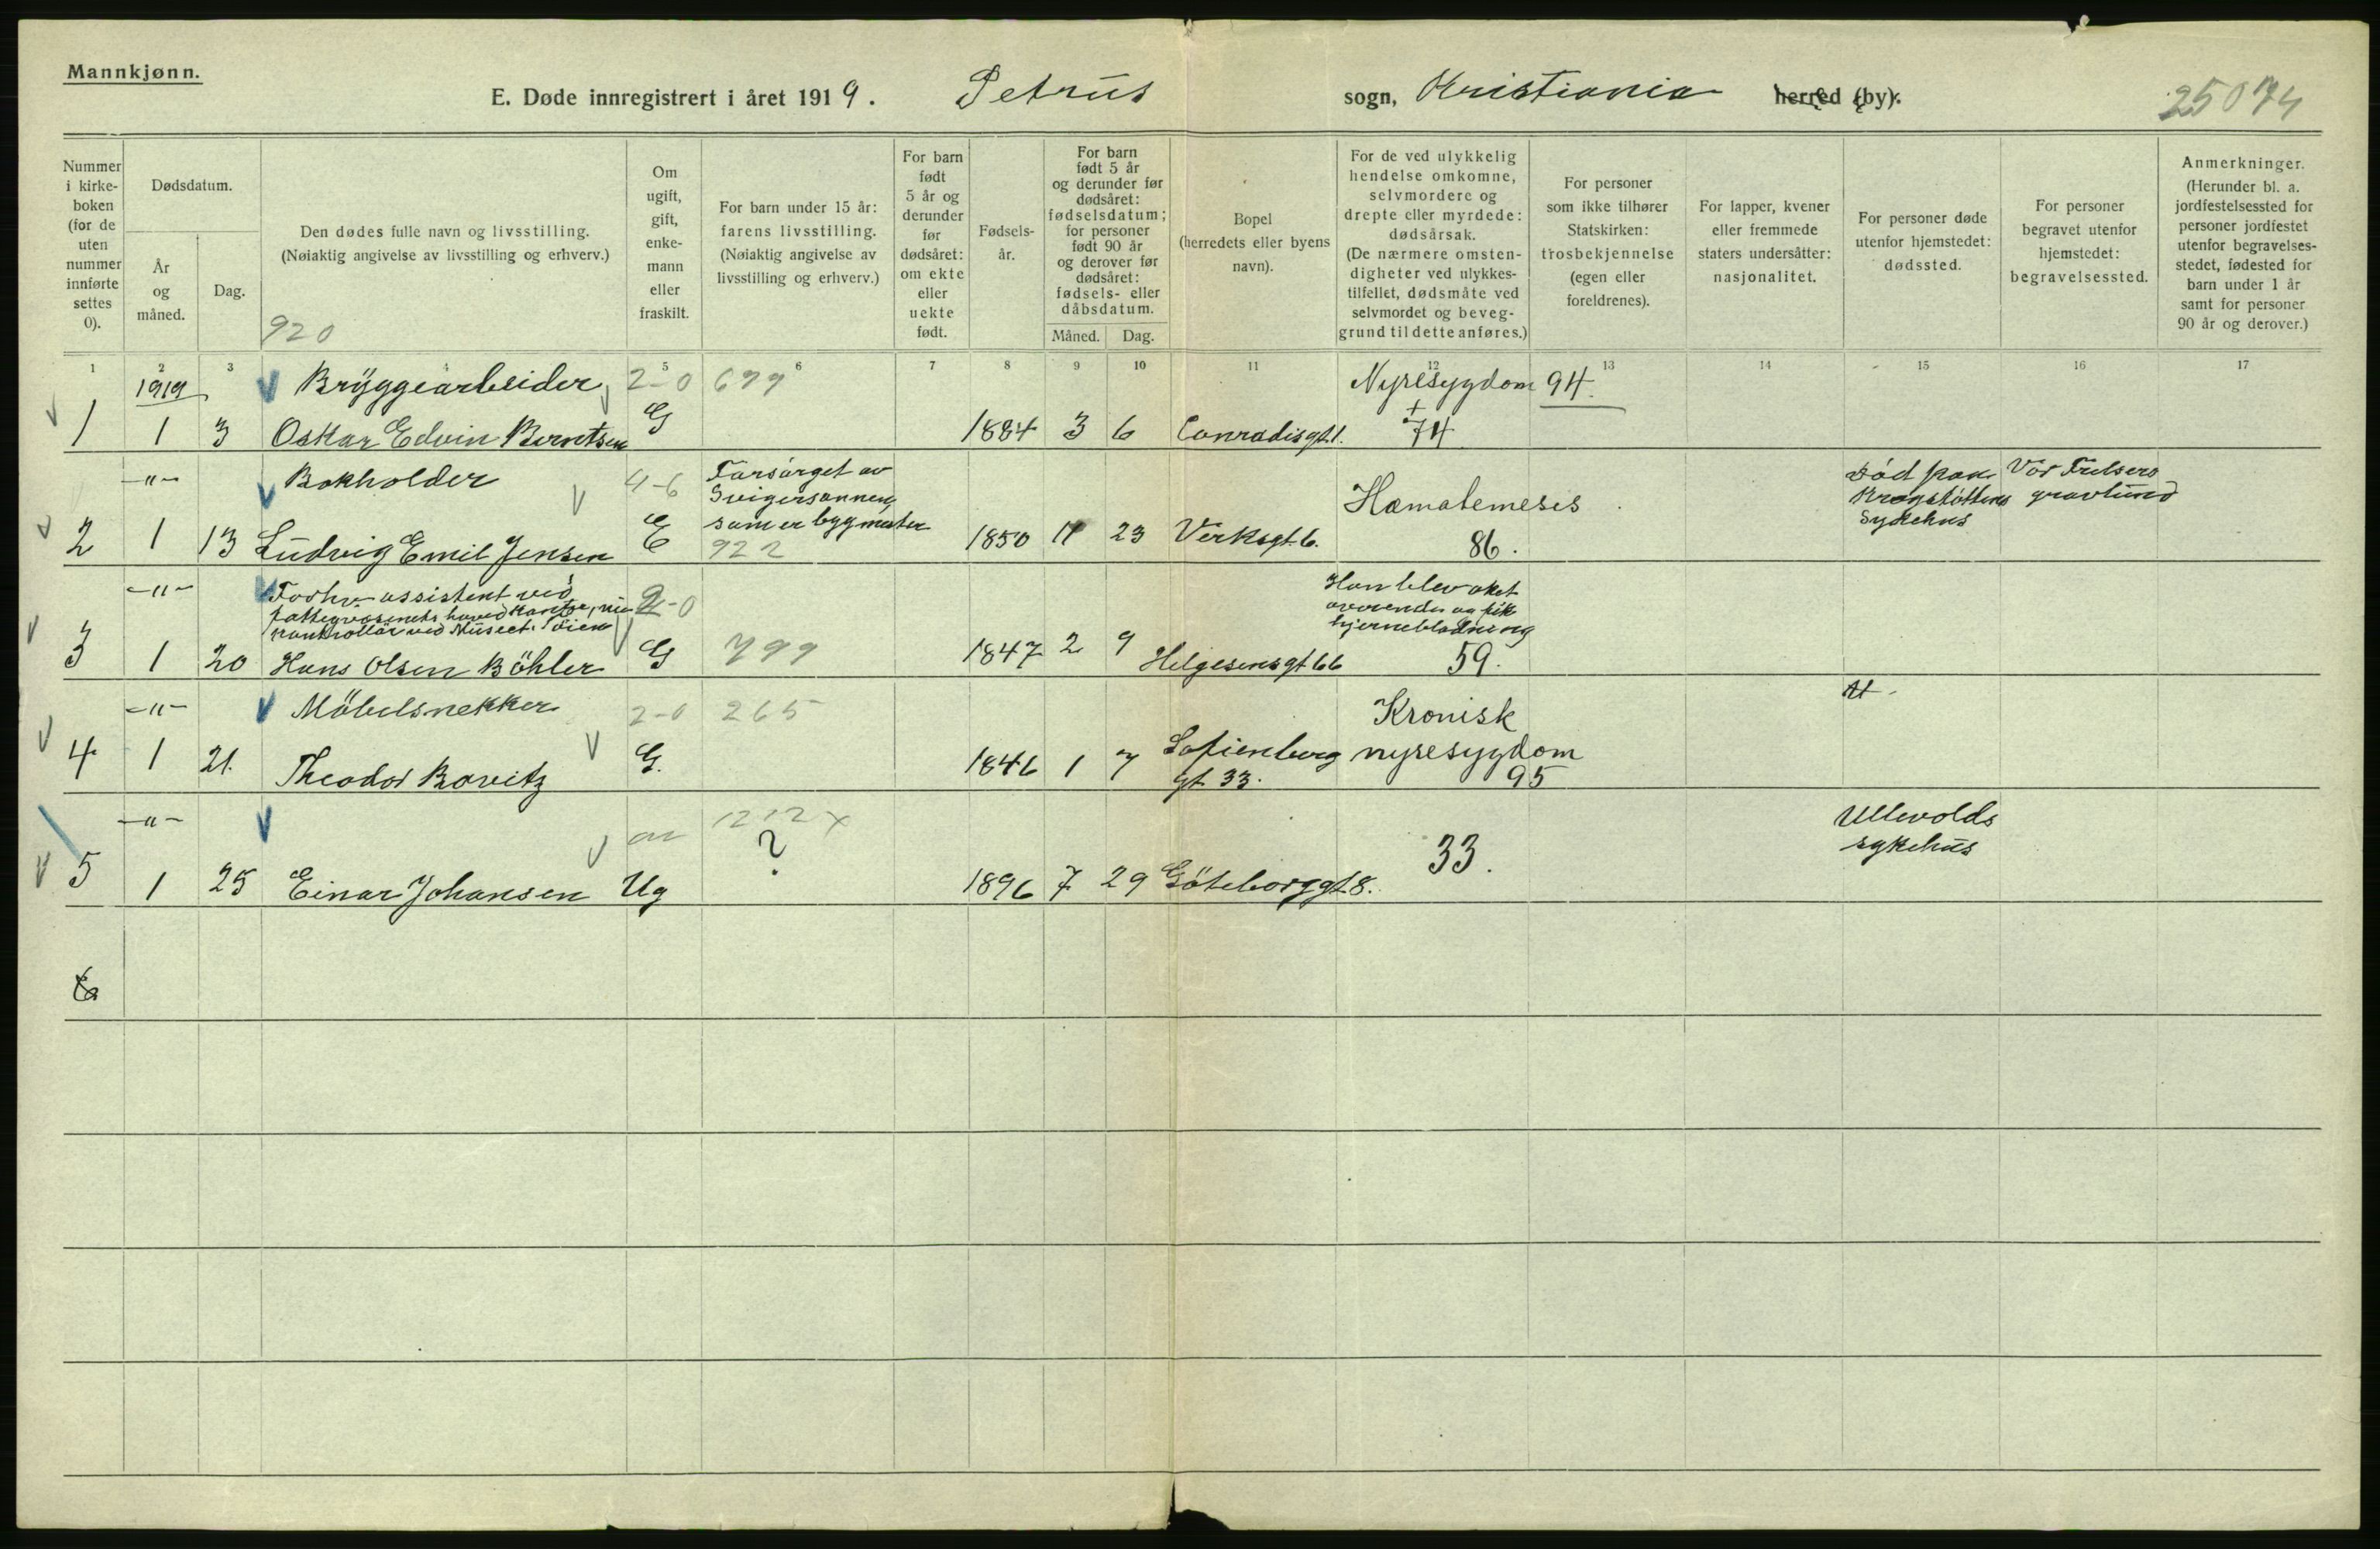 Mannkjønn.
E. Døde innregistrert i året 1919. Petrus sogn, Kristiania herred (by). 25074
Nummer i kirke-boken (for de uten nummer innførte settes 0).
Dødsdatum.
År og måned.
Dag.
Den dødes fulle navn og livsstilling.
(Nøiaktig angivelse av livsstilling og erhverv.)
920
Om ugift, gift, enke-mann eller fraskilt.
For barn under 15 år: farens livsstilling.
(Nøiaktig angivelse av livsstilling og erhverv.)
For barn født 5 år og derunder før dødsåret: om ekte eller uekte født.
Fødsels-år.
For barn født 5 år og derunder før dødsåret: fødselsdatum; for personer født 90 år og derover før dødsåret: fødsels- eller dåbsdatum.
Måned. Dag.
Bopel (herredets eller byens navn).
For de ved ulykkelig hendelse omkomne, selvmordere og drepte eller myrdede: dødsårsak.
(De nærmere omsten-digheter ved ulykkes-tilfellet, dødsmåte ved selvmordet og beveg-grund til dette anføres.)
For personer som ikke tilhører Statskirken: trosbekjennelse (egen eller foreldrenes).
For lapper, kvener eller fremmede staters undersåtter: nasjonalitet.
For personer døde utenfor hjemstedet: dødssted.
For personer begravet utenfor hjemstedet: begravelsessted.
Anmerkninger.
(Herunder bl. a. jordfestelsessted for personer jordfestet utenfor begravelses-stedet, fødested for barn under 1 år samt for personer 90 år og derover.)
1 2 3 4 5 6 7 8 9 10 11 12 13 14 15 16 17
1919 Bryggearbeider 2-0 699 Nyresygdom 94.
1 1 3 Oskar Edvin Berntsen G 1884 3 6 Conradisgt. 1. + 74
-"- Bokholder 4-6 Forsørget av Svigersønnen, som er bygmester 922
2 1 13 Ludvig Emil Jensen E 1850 11 23 Verksgt. 6. Hæmatemeses 86. Død paa Krogstøttens Sykehus Vor Frelsers gravlund
-"- Forhv. assistent ved fattigvæsenets hovedkontor, nu kontrollør ved Museet, Tøien 2-0
3 1 20 Hans Olsen Böhler G 799 1847 2 9 Helgesensgt 66 Han blev aket overende og fik hjerneblødning 59.
-"- Möbelsnekker 2-0 265 Kronisk
4 1 21. Theodor Bovitz G. 1846 1 7 Sofienberg gt. 33. nyresygdom 95
-"- 1212 x
5 1 25 Einar Johansen Ug ? 1896 7 29 Göteborggt. 8. 33. Ullevolds sykehus
6